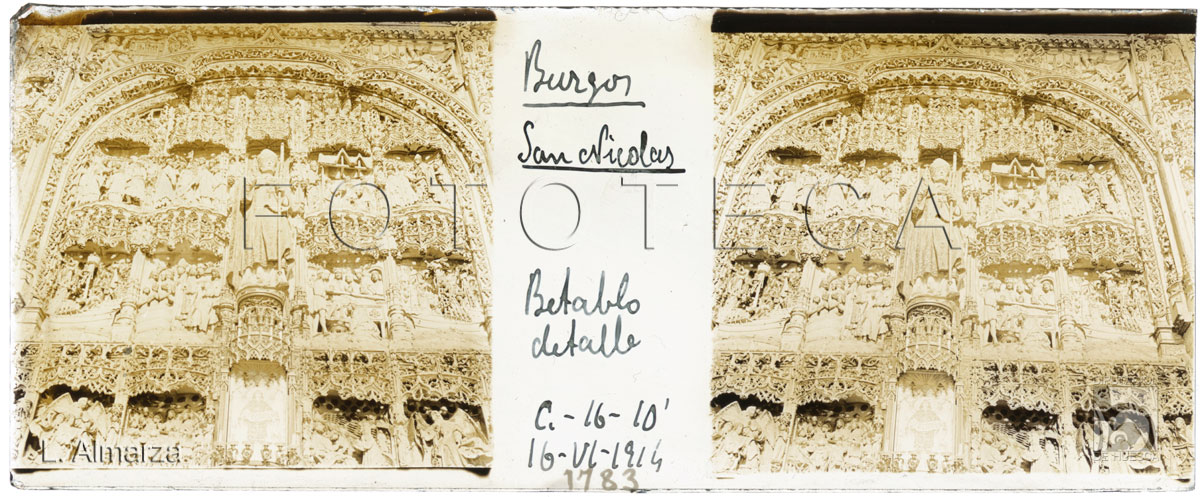 Burgos
San Nicolas
FOTOTECA
Retablo
detalle
C.-16-10'
16-VI-1914
1783
L. Almalza.